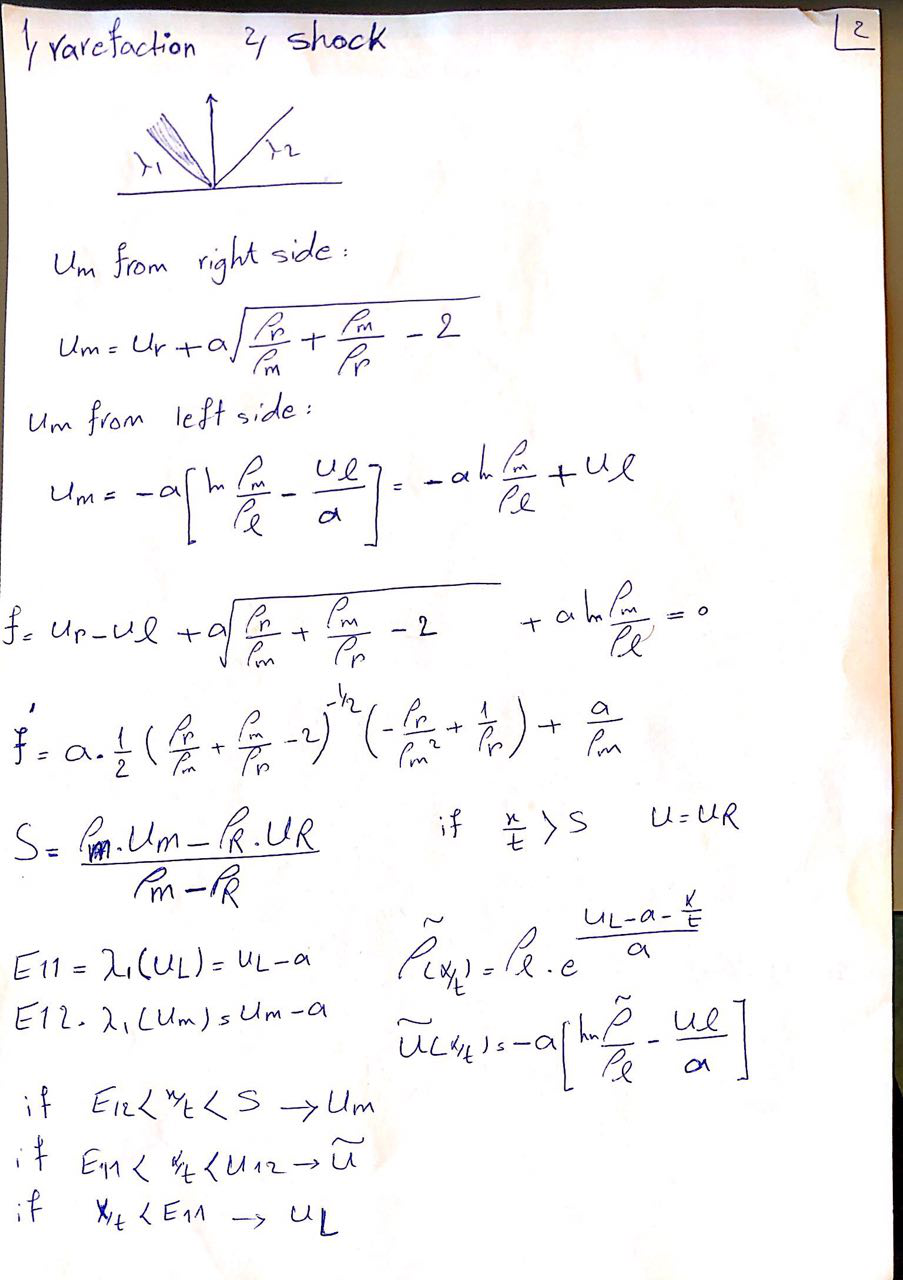 1, rarefaction 2, shock
2
λ1 λ2
Um from right side:
Um = Ur + a√(ρr/ρm + ρm/ρr - 2)
Um from left side:
Um = -a[ln ρm/ρl - ul/a] = -a ln ρm/ρl + ul
f = ur - ul + a√(ρr/ρm + ρm/ρr - 2) + a ln ρm/ρl = 0
f' = a·1/2 (ρr/ρm + ρm/ρr - 2)^(-1/2) (-ρr/ρm² + 1/ρr) + a/ρm
S = (ρm·Um - ρR·UR)/(ρm - ρR) if x/t > S U = UR
E11 = λ1(UL) = UL - a ρ̃(x/t) = ρl·e^((UL - a - x/t)/a)
E12 = λ1(Um) = Um - a ũ(x/t) = -a[ln ρ̃/ρl - ul/a]
if E12 < x/t < S → Um
if E11 < x/t < U12 → ũ
if x/t < E11 → UL